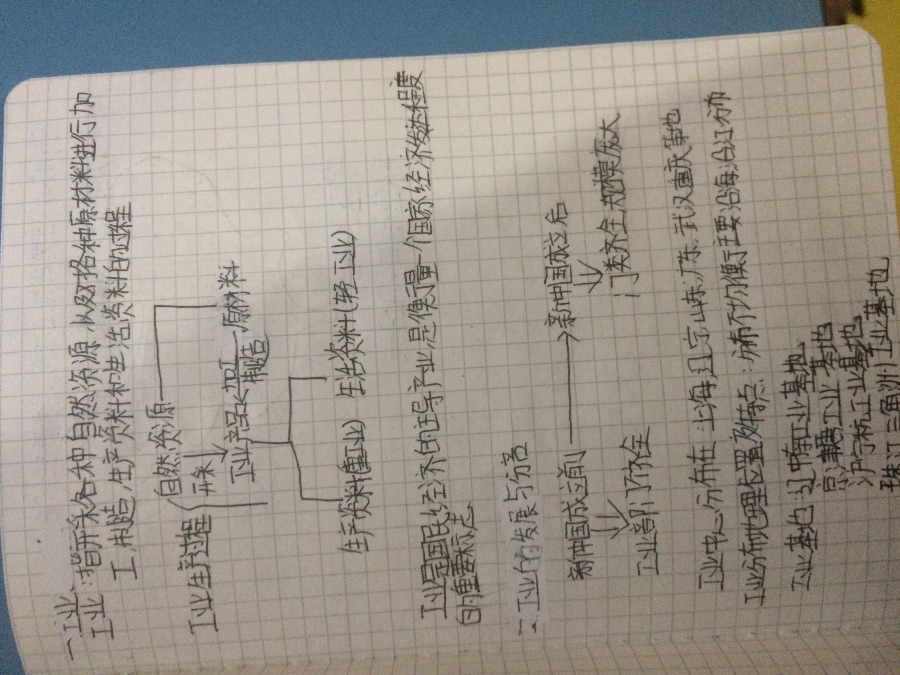 一.工业
工业:指开采各种自然资源,以及对各种原材料进行加
工,制造生产资料和生活资料的过程
自然资源
工业生产过程
开采
工业产品 加工 制造 原材料
生产资料(重工业) 生活资料(轻工业)
工业是国民经济的主导产业,是衡量一个国家经济发达程度
的重要标志
二.工业的发展与分布
新中国成立前 新中国成立后
工业部门不全 门类齐全,规模庞大
工业中心分布在 上海 辽宁 山东 广东 武汉 重庆等地
工业分布地理位置及特点:分布不均衡,主要沿海沿江分布
工业基地:辽中南工业基地
京津唐工业基地
沪宁杭工业基地
珠江三角洲工业基地